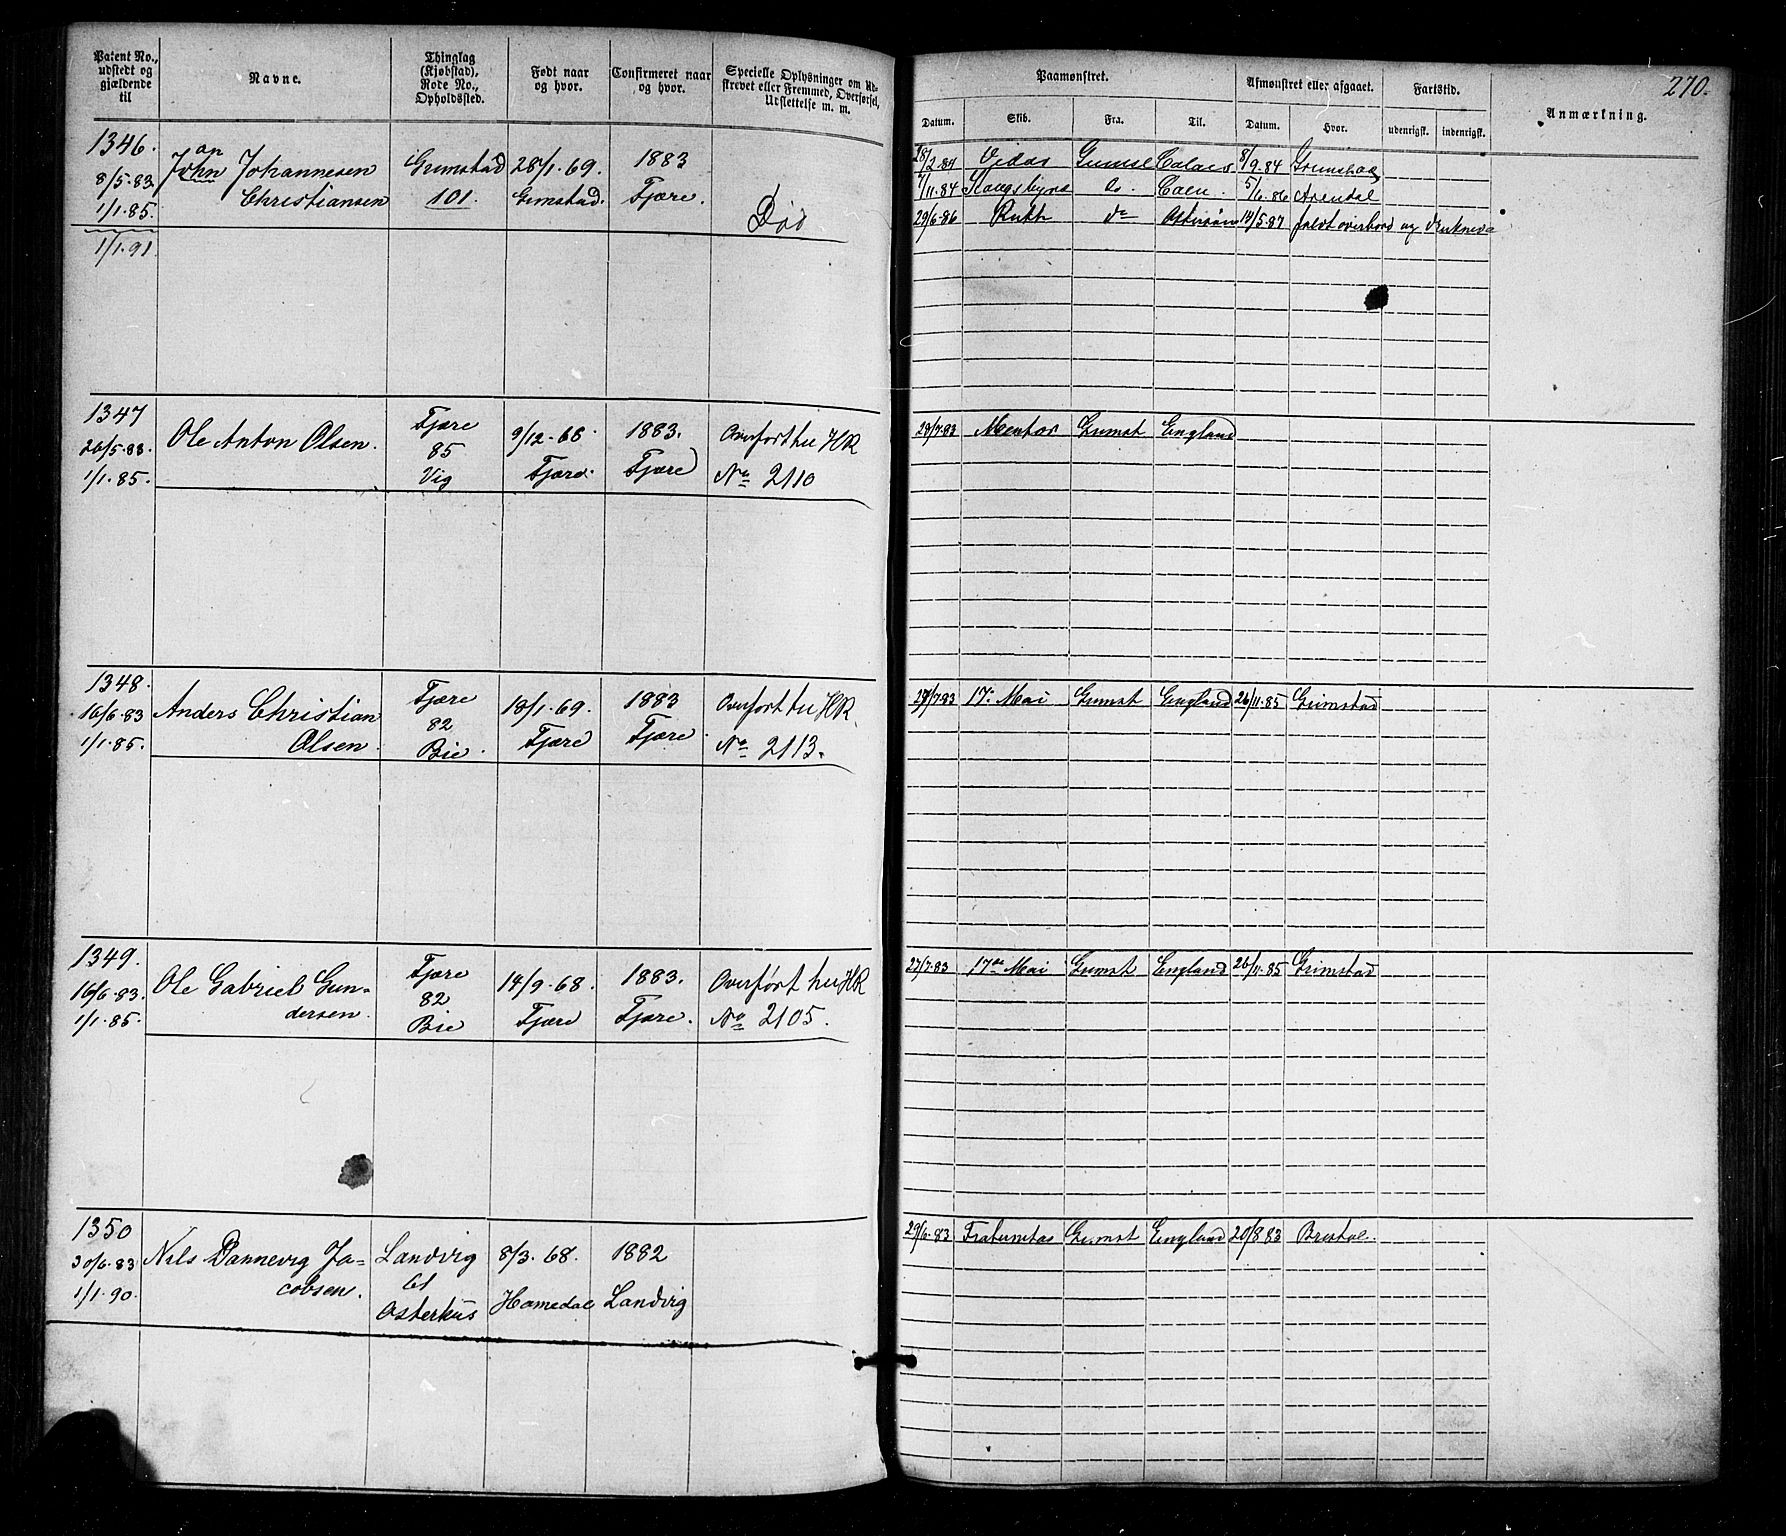 Patent No., udstedt og gjældende til
Navne.
Thinglag (Kjøbstad), Rode No., Opholdssted.
Født naar og hvor.
Confirmeret naar og hvor.
Specielle Oplysninger om Udskrevet eller Fremmed, Overførsel, Udslettelse m. m.
Paamønstret.
Afmønstret eller afgaaet.
Fartstid.
Anmærkning.
270.
Datum.
Skib.
Fra.
Til.
Datum.
Hvor.
udenrigsk.
indenrigsk.
1346.
8/5.83.
1/1.85.
1/1.91
an
John Johannesen
Christiansen
Grimstad
101.
28/1.69.
Grimstad.
1883
Fjære.
Død
18/2.84 Vidar Grimst Calais 8/9.84 Grimstad
7/11.84 do. Caen. 5/6.86 Arendal
29/6.86 Ruth do 18/5.87 faldt overbord og druknede
1347
20/5.83.
1/1.85.
Ole Anton Olsen.
Fjære
85
Vig
9/12.68.
Fjære.
1883.
Fjære
Overført til HR
No 2110
29/7.83 Mentor Grimst England
1348.
16/6.83
1/1.85.
Anders Christian
Olsen.
Fjære
82
Bie.
18/1.69.
Fjære
1883
Fjære.
Overført til HR.
No 2113.
27/7.83 17. Mai Grimst England 26/11.85 Grimstad
1349.
16/6.83.
1/1.85.
Ole Gabriel Gun-
dersen.
Fjære
82
Bie
14/9.68.
Fjære
1883.
Fjære.
Overført til HR
No 2105.
27/7.83 17de Mai Grimst England 26/11.85 Grimstad
1350
30/6.83
1/1.90.
Nils Dannevig Ja-
cobsen.
Landvig
61
Østerhus
8/3.68.
Homedal
1882
Landvig
29/6.83 Grimst England 20/8.83 Bristol.